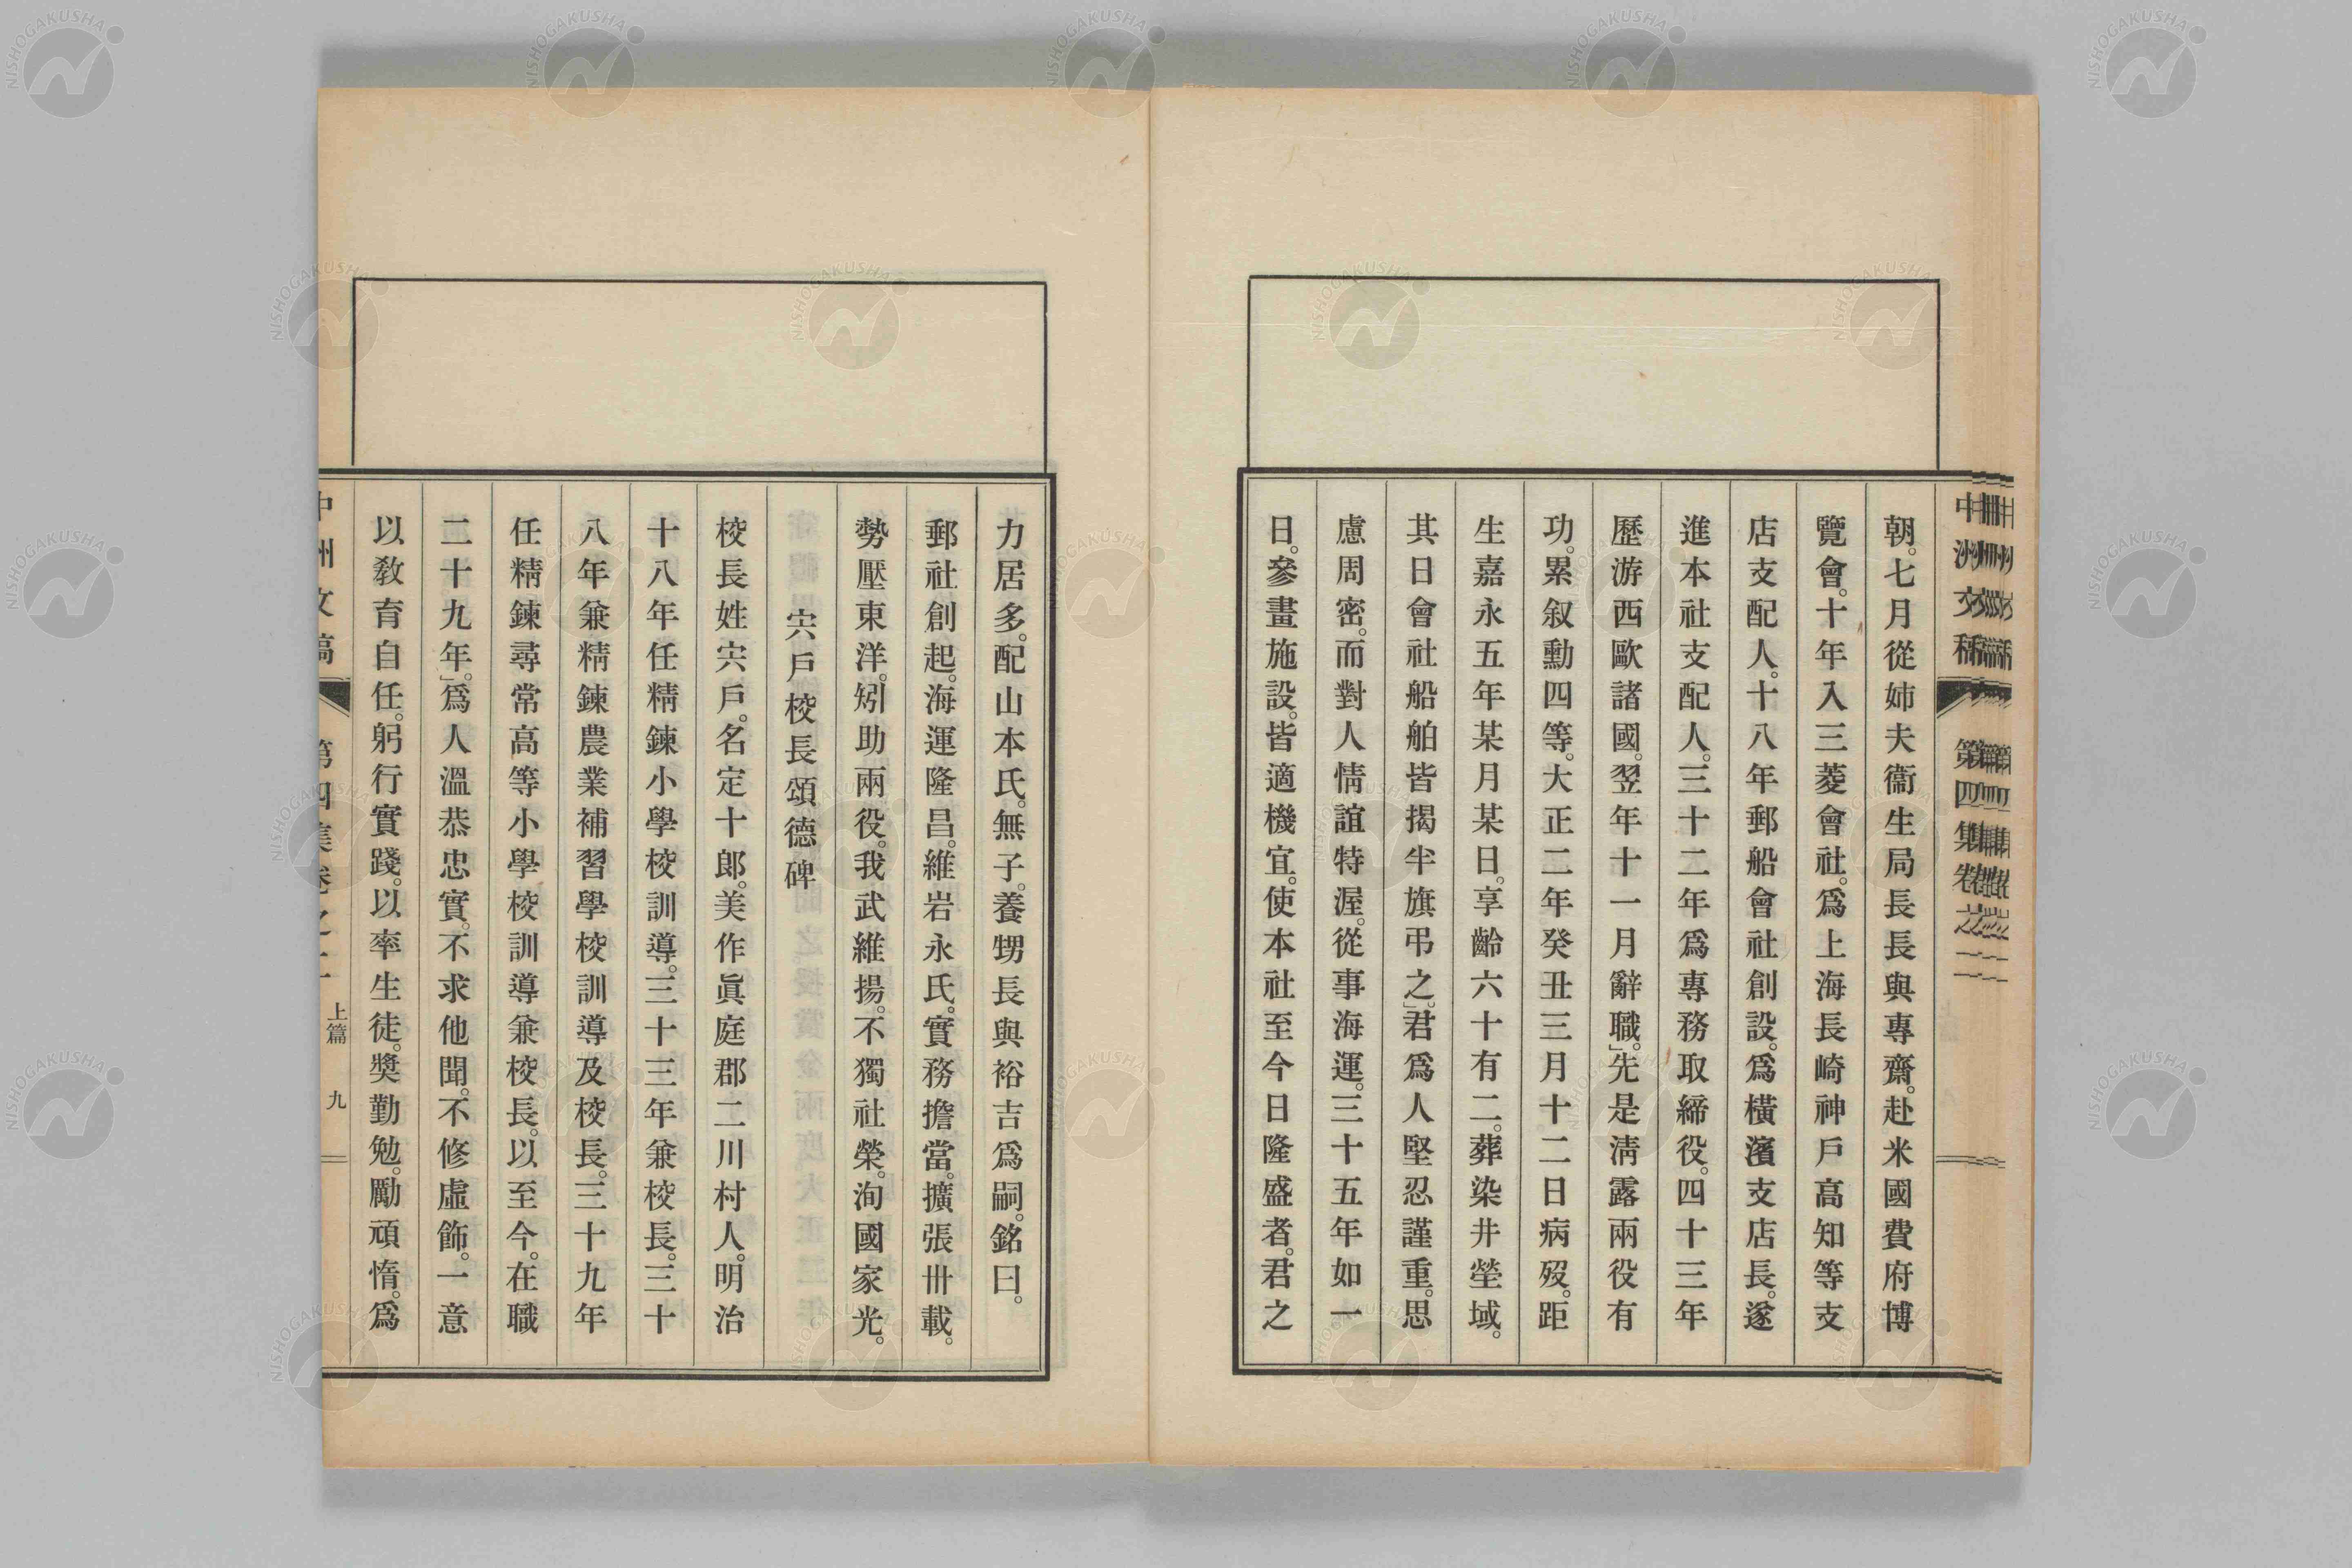 中洲文稿 第四集卷之二
朝。七月從姉夫衞生局長長與專齋。赴米國費府博
覽會。十年入三菱會社。爲上海長崎神戶高知等支
店支配人。十八年郵船會社創設。爲橫濱支店長。遂
進本社支配人。三十二年爲專務取締役。四十三年
歷游西歐諸國。翌年十一月辭職。」先是淸露兩役有
功。累叙勳四等。大正二年癸丑三月十二日病歿。距
生嘉永五年某月某日。享齡六十有二。葬染井塋域。
其日會社船舶皆揭半旗弔之。」君爲人堅忍謹重。思
慮周密。而對人情誼特渥。從事海運。三十五年如一
日。參畫施設。皆適機宜。使本社至今日隆盛者。君之
力居多。配山本氏。無子。養甥長與裕吉爲嗣。銘曰。
郵社創起。海運隆昌。維岩永氏。實務擔當。擴張卅載。
勢壓東洋。矧助兩役。我武維揚。不獨社榮。洵國家光。
宍戶校長頌德碑
校長姓宍戶。名定十郎。美作眞庭郡二川村人。明治
十八年任精鍊小學校訓導。三十三年兼校長。三十
八年兼精鍊農業補習學校訓導及校長。三十九年
任精鍊尋常高等小學校訓導兼校長。以至今。在職
二十九年。」爲人溫恭忠實。不求他聞。不修虛飾。一意
以敎育自任。躬行實踐。以率生徒。奬勤勉。勵頑惰。爲
中洲文稿 第四集卷之二 上篇 九
NISHOGAKUSHA